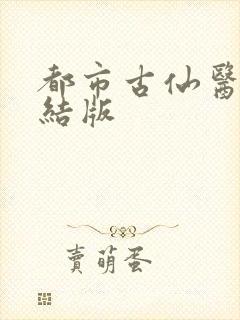 都市古仙醫
結版
賣萌蛋